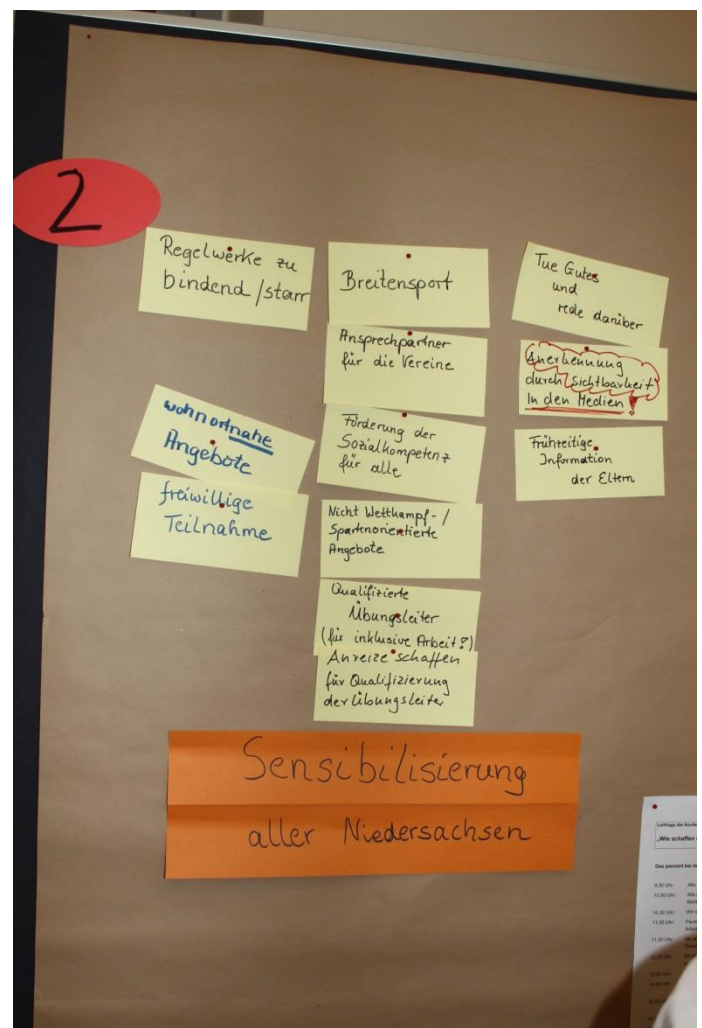 2
Regelwerke zu
bindend / starr
wohnortnahe
Angebote
freiwillige
Teilnahme
Breitensport
Ansprechpartner
für die Vereine
Förderung der
Sozialkompetenz
für alle
Nicht Wettkampf- /
Spartenorientierte
Angebote
Qualifizierte
Übungsleiter
(für inklusive Arbeit?)
Anreize schaffen
für Qualifizierung
der Übungsleiter
Tue Gutes
und
rede darüber
Anerkennung
durch Sichtbarkeit
In den Medien !
Frühzeitige
Information
der Eltern
Sensibilisierung
aller Niedersachsen
Leitfrage der
„Wie schaffen
Das passiert bei
9.30 Uhr
10.00 Uhr
10.30 Uhr
11.00 Uhr
11.30 Uhr